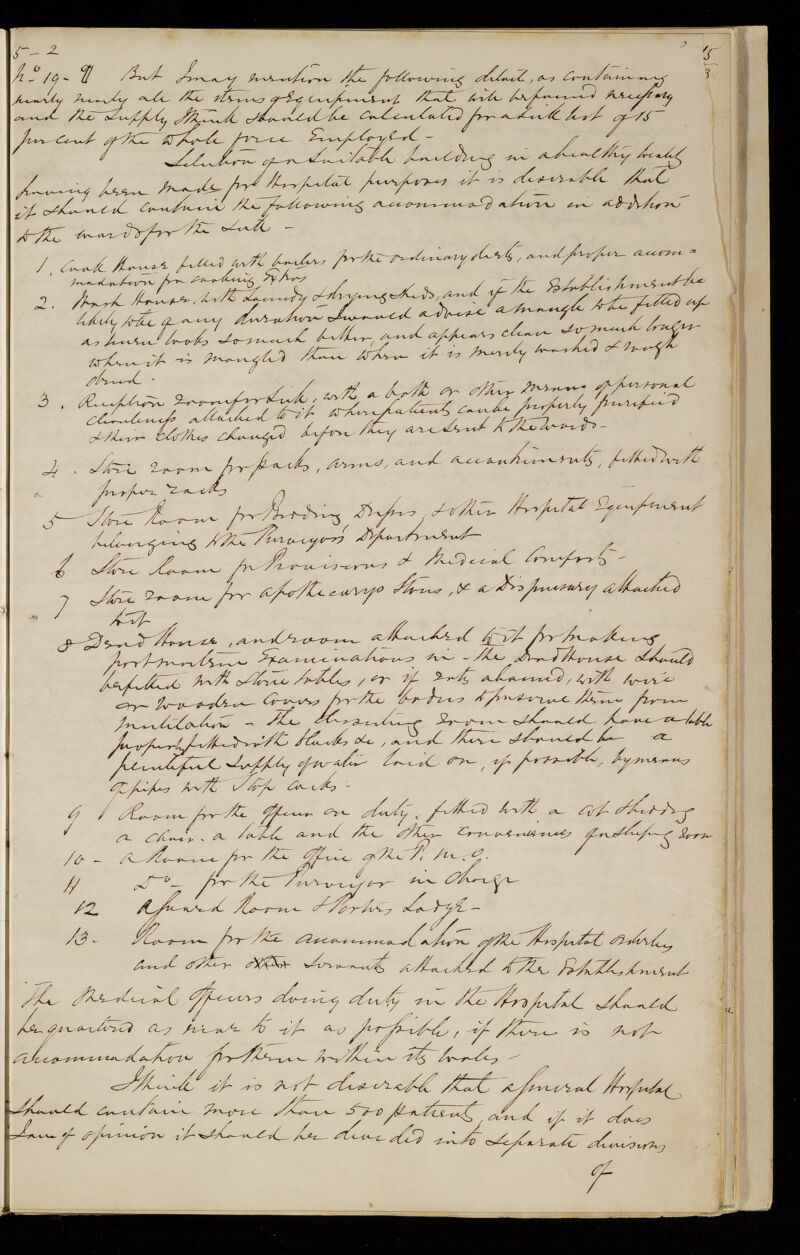 5-2
15
3
No. 19 - But I may mention the following detail, as containing
nearly nearly all the items of Equipment that will be found necessary
and the supply I think should be calculated for a sick list of 15
per cent of the whole force Employed -
Selection of a suitable building in a healthy locality
having been made for Hospital purposes it is desirable that
it should contain the following accommodation in addition
to the wards for the sick -
1. Cook House fitted with boilers for the ordinary diets, and proper accom=
modation for cooking Extras
2. Wash House, with Laundry & drying sheds, and if the Establishment be
likely to be of any duration I would advise a mangle to be fitted up
as linen looks so much better, and appears clean so much longer
when it is mangled than when it is merely washed & rough
dried.
3. Reception room for sick, with a bath or other means of personal
cleanliness attached to it where patients can be properly purified
& their clothes changed before they are sent to the wards -
4. Store room for packs, arms, and accoutrements, fitted with
proper racks
5 Store Room for Bedding, Dresses, & other Hospital Equipment
belonging to the Purveyor's Department
6 Store Room for Provisions & Medical Comforts -
7 Store room for apothecarys Stores, & a Dispensary attached
to it
8 Dead House, and room attached to it for making
postmortem Examinations in - the dead House should
be fitted with Stone tables, or if rats abound, with wire
or wooden covers for the bodies to preserve them from
mutilation - The dissecting room should have a table
properly fitted with blocks &c, and there should be a
plentiful supply of water laid on, if possible, by means
of pipes with Stop cocks.
9 Room for the officer on duty, fitted with a cot & bedding
a chair, a table and the other conveniences of a sleeping room
10 - a Room for the office of the P. M. O.
11 Do - for the Purveyor in charge
12 a Guard Room & Porters Lodge -
13. Room for the accommodation of the Hospital orderlies
and other servants attached to the Establishment
The Medical officers doing duty in the Hospital should
be quartered as near to it as possible, if there is not
accommodation for them within its
I think it is not desirable that a General Hospital
should contain more than 500 patients, and if it does
I am of opinion it should be divided into separate divisions
of